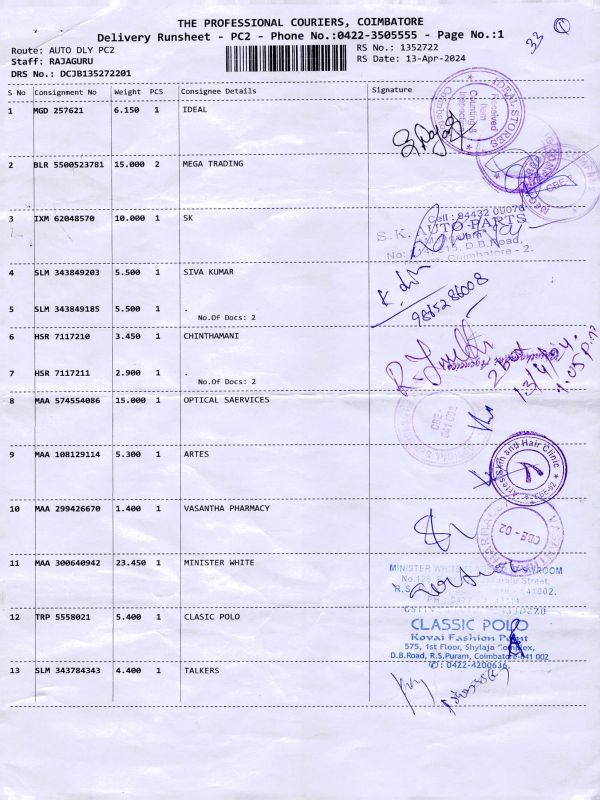 THE PROFESSIONAL COURIERS, COIMBATORE
Delivery Runsheet - PC2 - Phone No.:0422-3505555 - Page No.:1
33
Route: AUTO DLY PC2
RS No.: 1352722
Staff: RAJAGURU
RS Date: 13-Apr-2024
DRS No.: DCJB135272201
S No Consignment No Weight PCS Consignee Details Signature
1 MGD 257621 6.150 1 IDEAL
IDEAL STORES
Received
Item
Counting &
2 BLR 5500523781 15.000 2 MEGA TRADING
CBE
3 IXM 62048570 10.000 1 SK
Cell : 94432 05076
S.K. AUTO PARTS
D.B.Road,
Coimbatore - 2.
4 SLM 343849203 5.500 1 SIVA KUMAR
5 SLM 343849185 5.500 1 .
No.Of Docs: 2
6 HSR 7117210 3.450 1 CHINTHAMANI
2 box
13/4/24.
7 HSR 7117211 2.900 1 .
No.Of Docs: 2
8 MAA 574554086 15.000 1 OPTICAL SAERVICES
CBE
641 002
9 MAA 108129114 5.300 1 ARTES
Artes Skin and Hair Clinic
CBE-02
10 MAA 299426670 1.400 1 VASANTHA PHARMACY
CBE - 02
11 MAA 300640942 23.450 1 MINISTER WHITE
MINISTER WHITE
Street,
12 TRP 5558021 5.400 1 CLASIC POLO
CLASSIC POLO
Kovai Fashion Point
575, 1st Floor, Shylaja Complex,
D.B.Road, R.S.Puram, Coimbatore-641 002
✆: 0422-4200636.
13 SLM 343784343 4.400 1 TALKERS